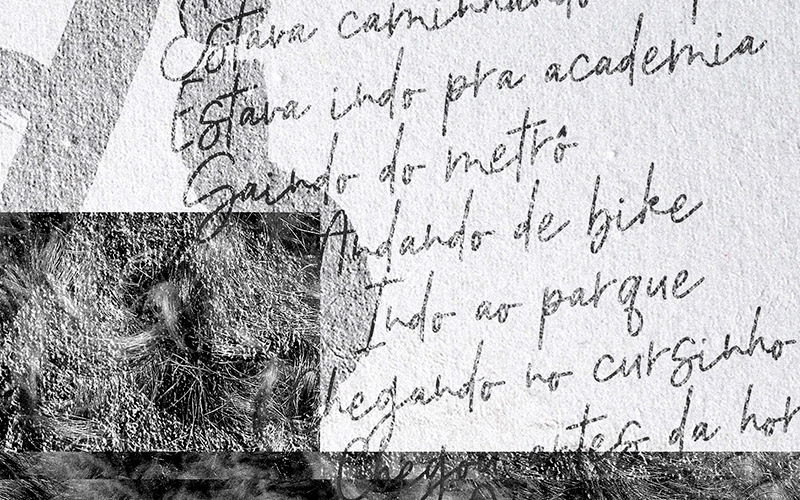 Estava caminhando
Estava indo pra academia
Saindo do metrô
Andando de bike
Indo ao parque
hegando no cursinho
Chegou antes da hor